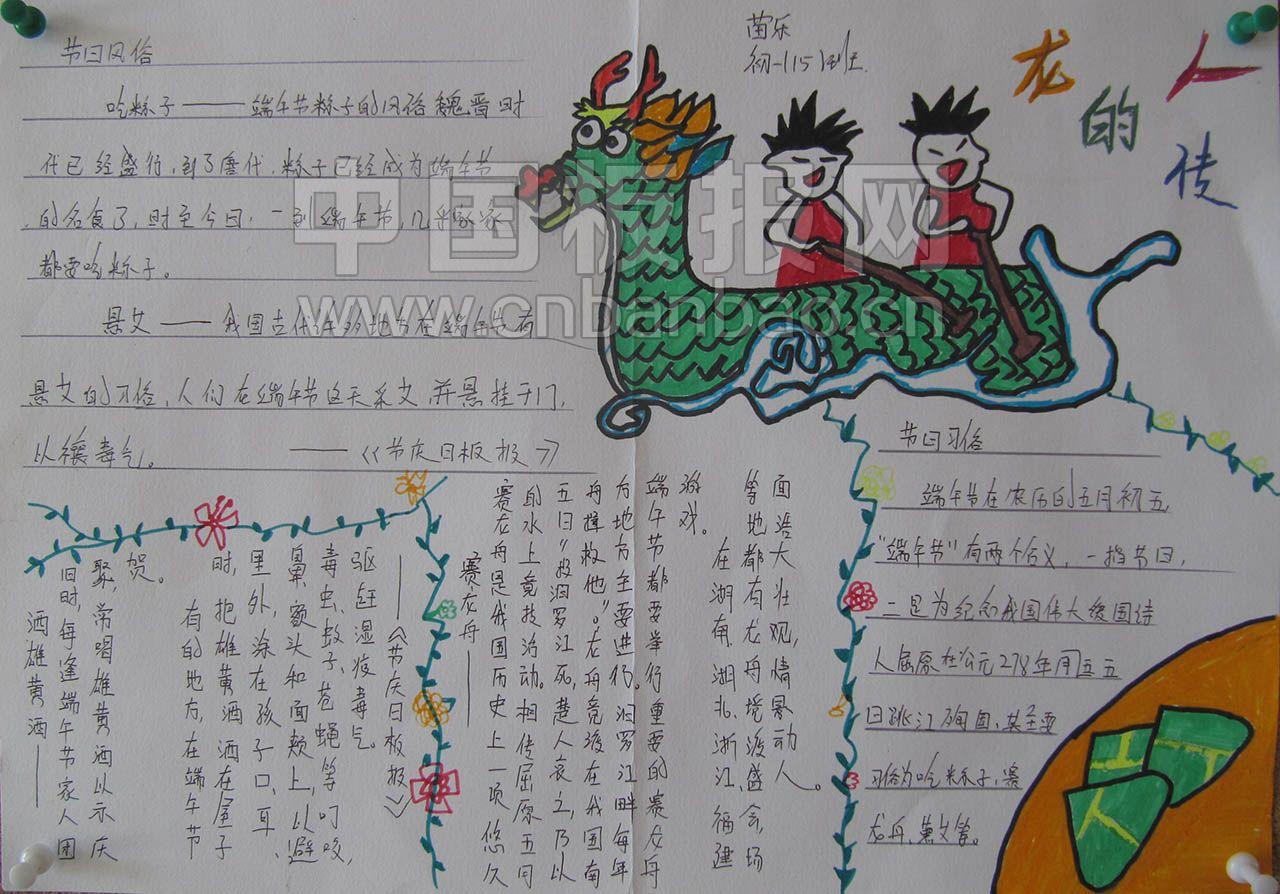 苗乐
初一(15)班
龙的人传
节日风俗
吃粽子——端午节粽子的风俗魏晋时
代已经盛行,到了唐代,粽子已经成为端午节
的名食了,时至今日,一到端午节,几乎家家
都要吃粽子。
悬艾——我国古代许多地方在端午节有
悬艾的习俗,人们在端午节这天采艾,并悬挂于门,
以禳毒气。——《节庆日板报》
洒雄黄酒——
旧时,每逢端午节家人团
聚,常喝雄黄酒以示庆
贺。
有的地方,在端午节
时,把雄黄酒洒在屋子
里外,涂在孩子口、耳、
鼻、家头和面颊上,以避
毒虫、蚊子、苍蝇等叮咬,
驱赶湿疫毒气。
——《节庆日板报》
赛龙舟——
赛龙舟是我国历史上一项悠久
的水上竞技活动。相传屈原五月
五日“投汨罗江死,楚人哀之,乃以
舟撵救他”。在舟竞渡在我国南
方地方主要进行。汨罗江畔每年
端午节都要举行重要的赛龙舟
游戏。
在湖南、湖北、浙江、福建
等地都有龙舟境渡盛会,场
面浩大壮观,情景动人。
节日习俗
端午节在农历的五月初五,
“端午节”有两个含义,一指节日,
二是为纪念我国伟大爱国诗
人屈原在公元278年月五五
日跳江殉国,其主要
习俗为吃粽子,赛
龙舟,薰艾等。
中国板报网
www.cnbanbao.cn